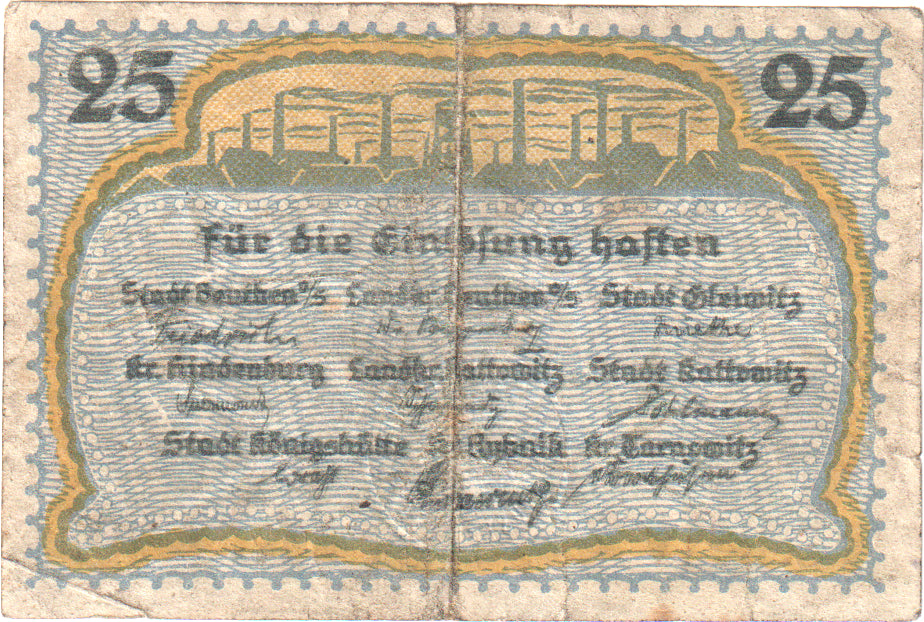 25 25
für die Einlösung haften
Stadt Beuthen O/S Landkr. Beuthen O/S Stadt Gleiwitz
Kr. Hindenburg Landkr. Kattowitz Stadt Kattowitz
Pohlmann
Stadt Königshütte Kr. Rybnik Kr. Tarnowitz